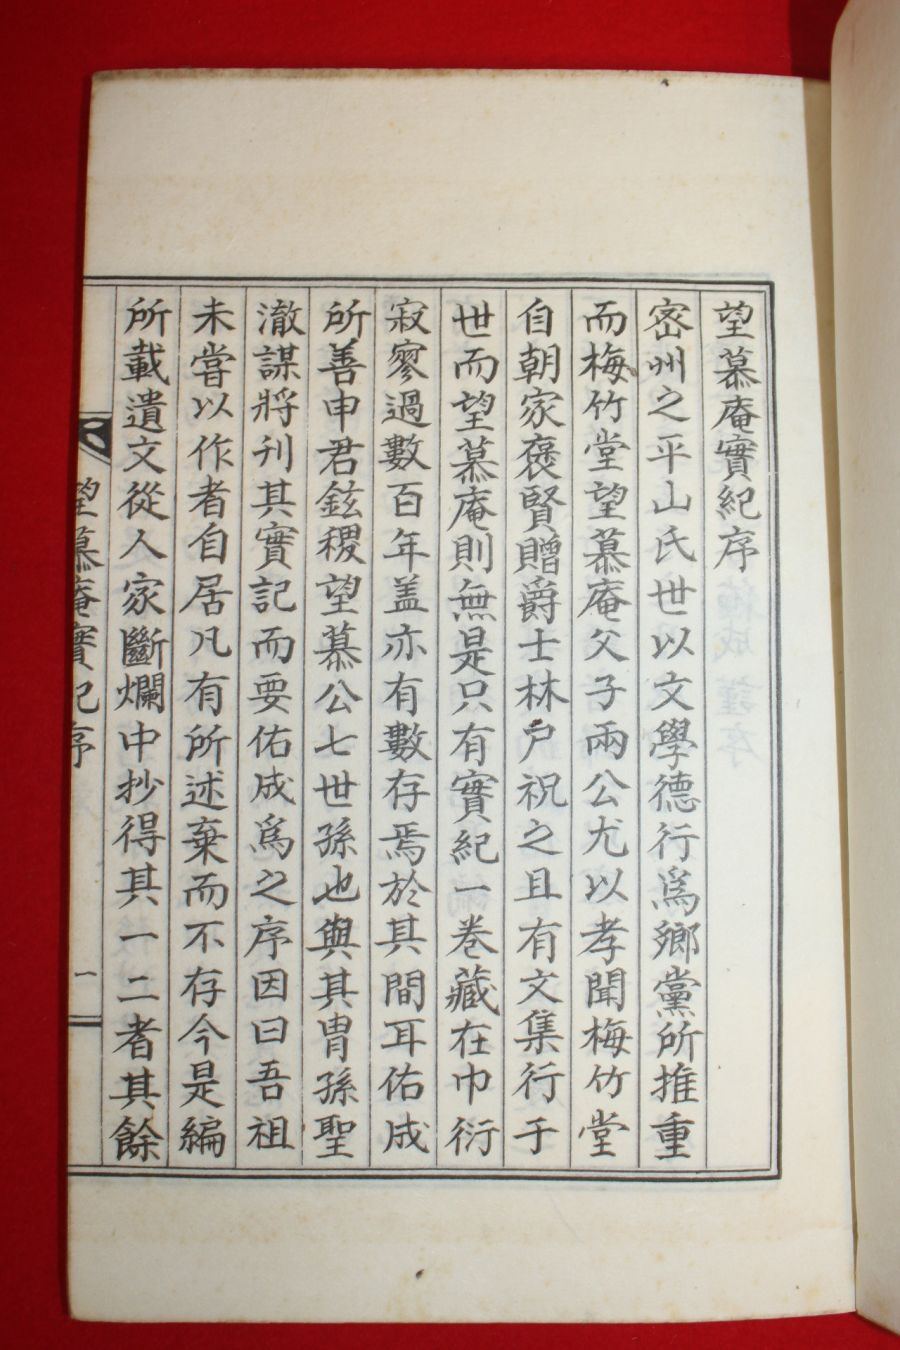 望慕庵實紀序
密州之平山氏世以文學德行爲鄉黨所推重
而梅竹堂望慕庵父子兩公尤以孝聞梅竹堂
自朝家褒賢贈爵士林尸祝之且有文集行于
世而望慕庵則無是只有實紀一卷藏在巾衍
寂寥過數百年盖亦有數存焉於其間耳佑成
所善申君鉉稷望慕公七世孫也與其胄孫聖
澈謀將刊其實記而要佑成爲之序因曰吾祖
未嘗以作者自居凡有所述棄而不存今是編
所載遺文從人家斷爛中抄得其一二者其餘
望慕庵實紀序
一